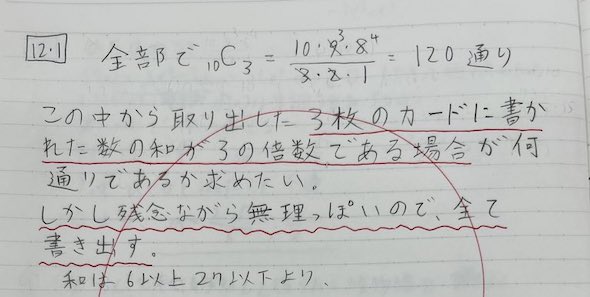 12・1
全部で ₁₀C₃ = 10・9・8/3・2・1 = 120 通り
3 4
この中から取り出した3枚のカードに書か
れた数の和が3の倍数である場合が何
通りであるか求めたい。
しかし残念ながら無理っぽいので、全て
書き出す。
和は6以上27以下より、